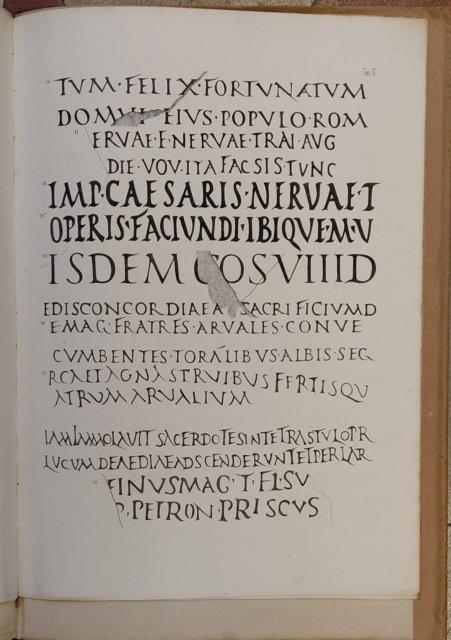 TVM·FELIX·FORTVNATVM
EIVS·POPVLO·ROM
ERVAE·E·NERVAE·TRAI·AVG
DIE·VOV·ITA FACSIS TVNC
IMP·CAESARIS·NERVAE·T
OPERIS·FACIVNDI·IBIQVE·M·V
ISDEM COS VIIII D
EDISCONCORDIAEA SACRIFICIVMD
E·MAG·FRATRES·ARVALES·CONVE
CVMBENTES·TORALIBVS·ALBIS·SEG
RCAETAGNASTRVIBVS FERTISQV
ATRVMARVALIVM
SACERDOTESINTETRASTVLOPR
LVCVMDEAEDIAEADSCENDERVNTETPERLAR
FINVSMAG·T·FLSV
P·PETRON·PRISCVS